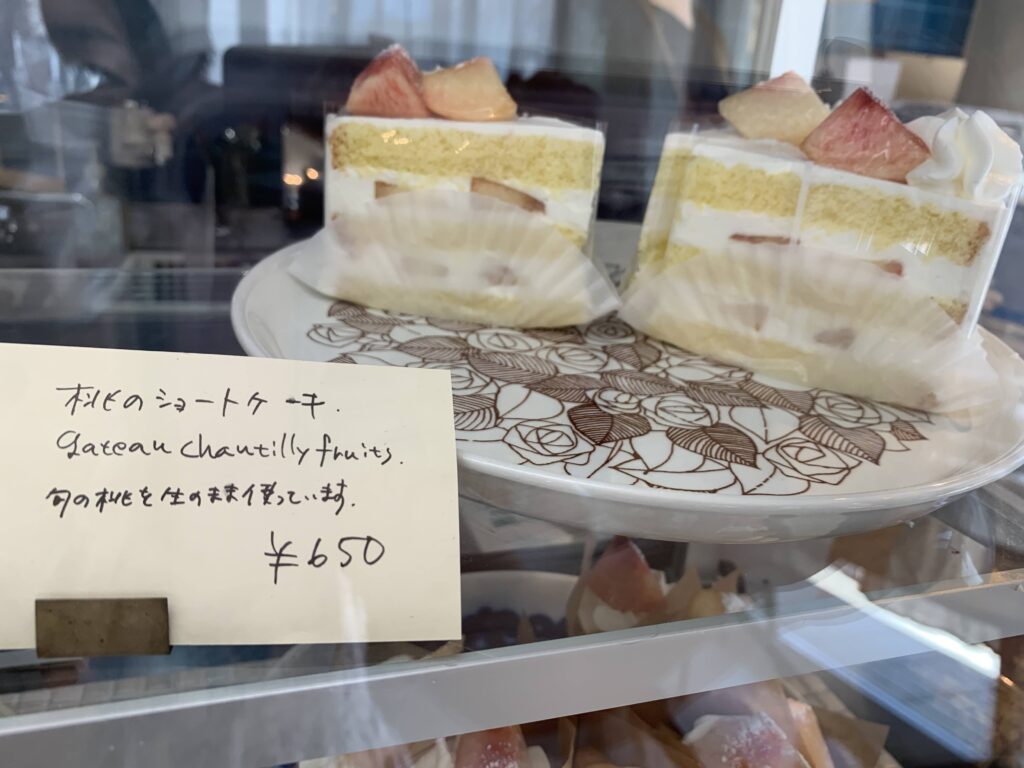 桃のショートケーキ.
gateau chantilly fruits.
旬の桃を生のまま使っています.
¥650